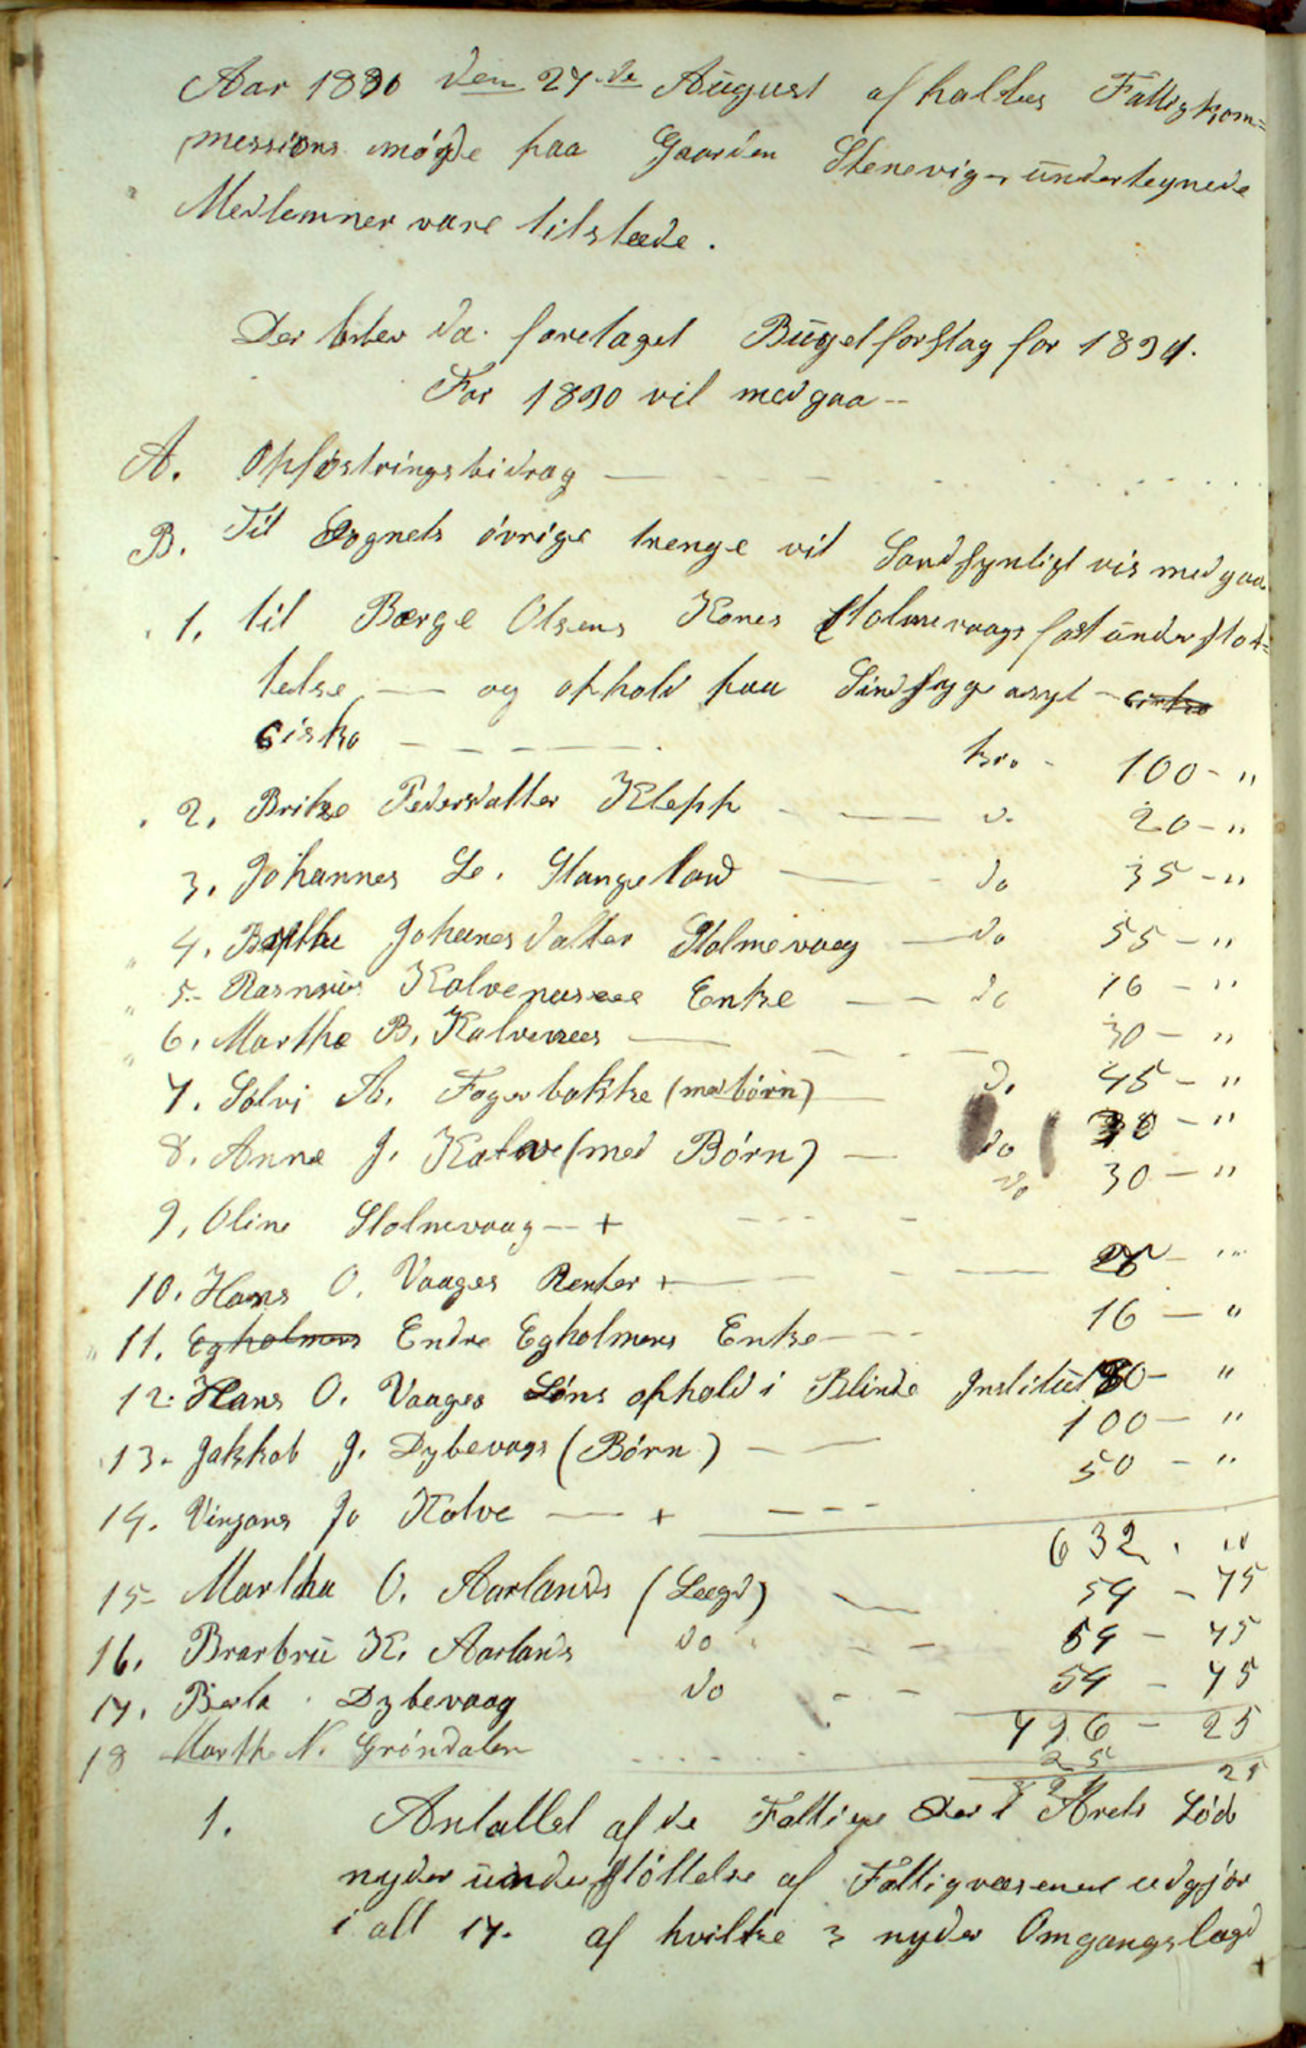 Aar 1890 den 27de August afholttes Fattigkom=
messions møde paa Gaarden Stenevig - undertegnede
Medlemner vare tilstæde.
Der blev da foretaget Büdgetforslag for 1891.
For 1890 vil medgaa --
A. Opføstringsbidrag
B. Til Sognets øvrige trenge vil Sandsynligt vis medgaa
1. til Børge Olsens Kones Stolmevaags fast understøt=
telse — og ophold paa Sindsyge asyl -
cirka kro - 100 - "
2. Britze Pedersdatter Klepp d. 20 - "
3. Johannes L. Stangeland do 35 - "
4. Johanesdatter Stolmevaag do 55 - "
5. Rasmus Kalvenes Enke do 16 - "
6. Marthe B. Kalvenes 30 - "
7. Sølvi A. Fagerbakke (med børn) d. 45 - "
8. Anne J. Kalve (med Børn) do 30 - "
do 30 - "
9. Oline Stolmevaag - +
10. Hans O. Vaages Renter + "
11. Egholmens Endre Egholmens Enke 16 - "
12. Hans O. Vaages Søns ophold i Blinde Institut 80 - "
100 - "
13. Jakkob J. Dybevags (Børn) 50 - "
14. Jo Kalve - +
632. "
15 Martha O. Aarlands (Lægd) 54 - 75
16. Brarbru K. Aarlands do 54 - 75
17. Berta Dybevaag do 54 - 75
796 - 25
18 Marthe N. Grøndalen 25
821 25
1. Antallet af de Fattige der i Årets Löb
nyder understøttelse af Fattigvæsenet udgjør
i alt 17. af hvilke 3 nyder Omgangslægd